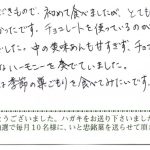 できもので、初めて食べましたが、とても
かったです。チョコレートを使っているのが
でした。中の栗味あんも甘すぎず、チョコ
いハーモニーを奏でていました。
は季節の草ごもりを食べてみたいです。
うございました。ハガキをお送り下さいました
選で毎月10名様に、いと忠銘菓を送らせて頂